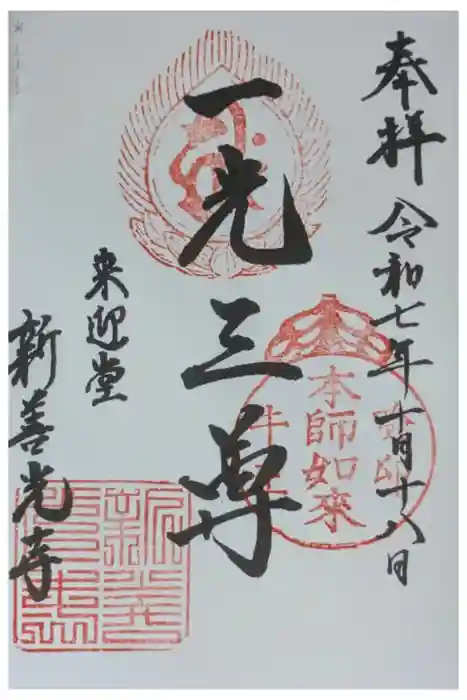 奉拝 令和七年十月十八日
一光三尊
来迎堂
新善光寺
本師如来
牛王
宝印